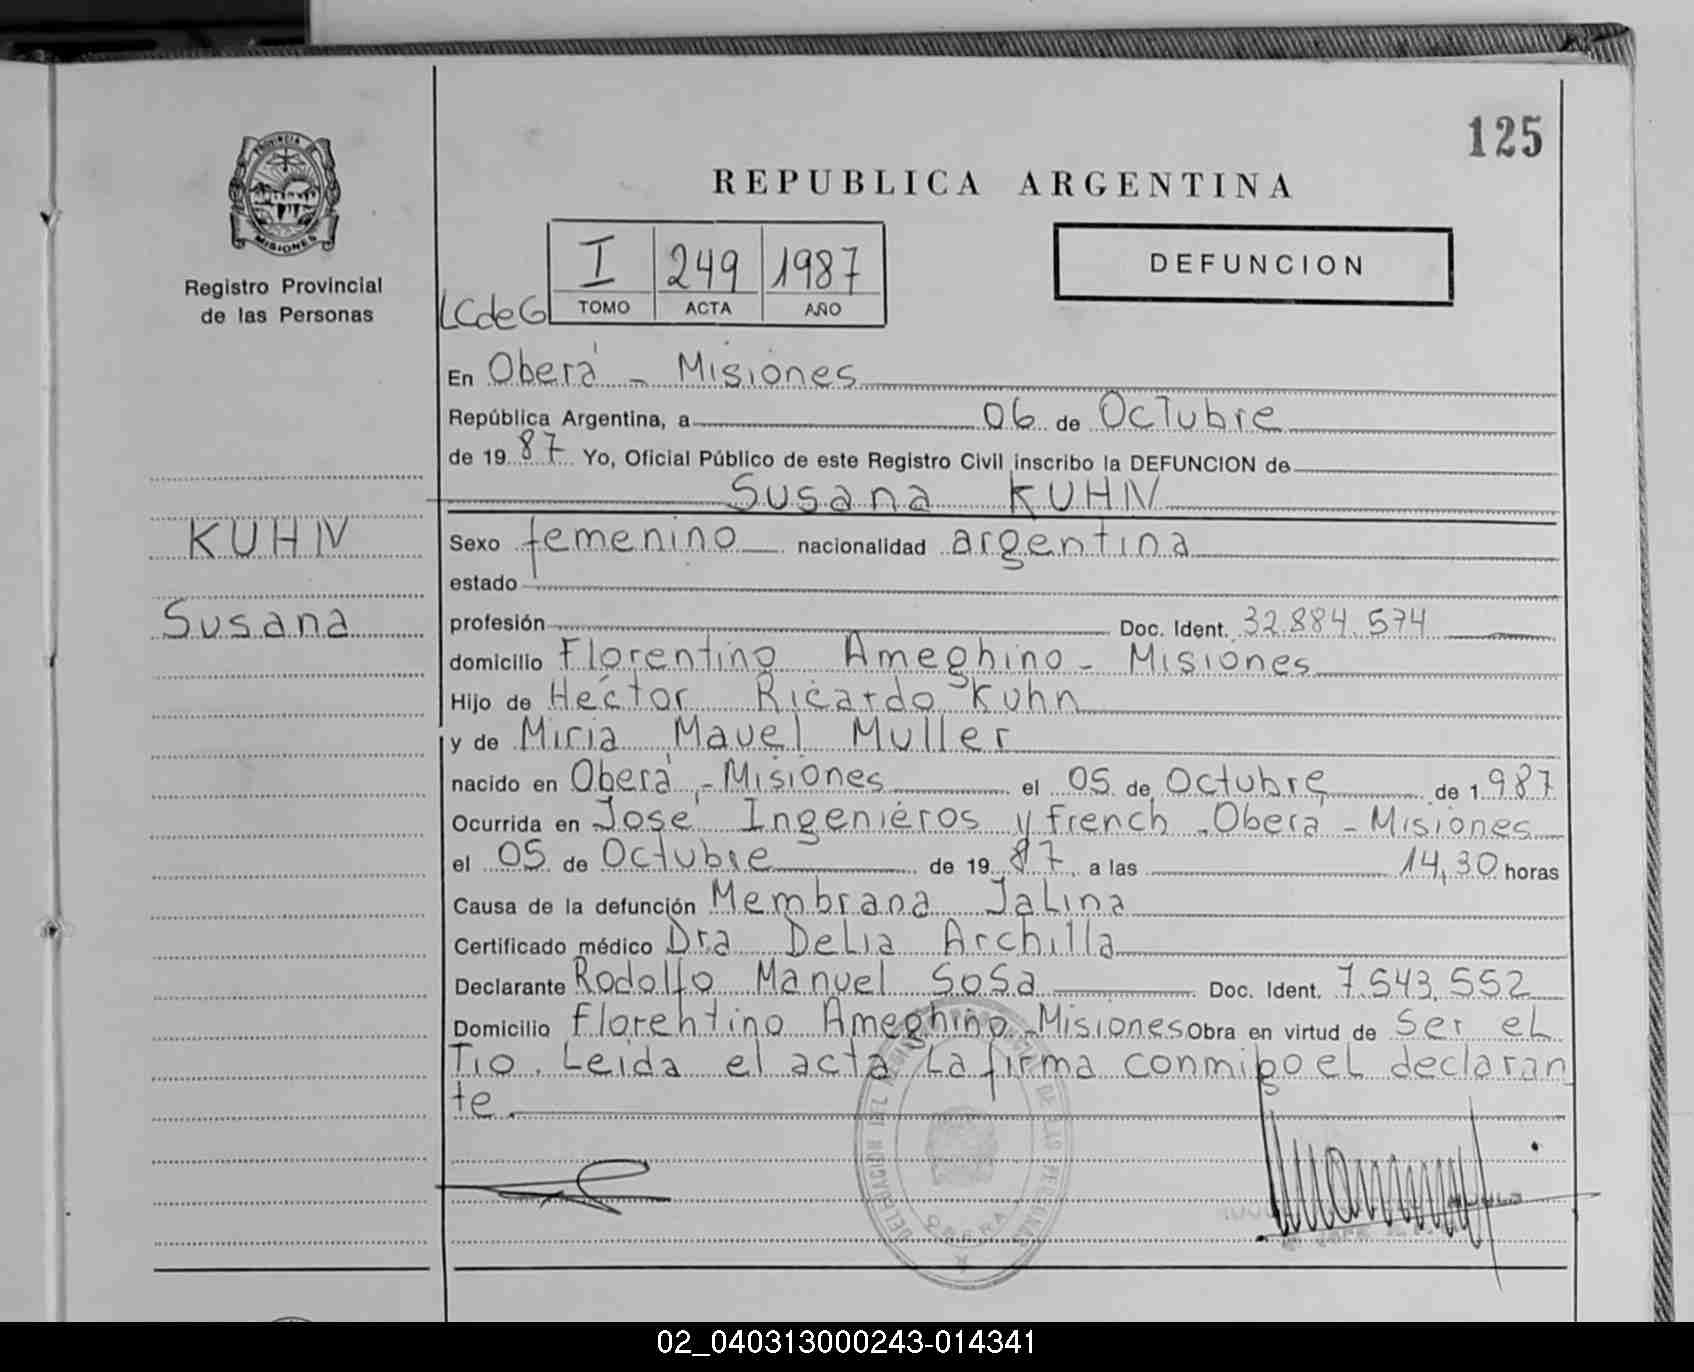 125
PROVINCIA DE
MISIONES
Registro Provincial
de las Personas
REPUBLICA ARGENTINA
I 249 1987
TOMO ACTA AÑO
DEFUNCION
LCdeG
En Oberá - Misiones
República Argentina, a 06 de Octubre
de 1987 Yo, Oficial Público de este Registro Civil inscribo la DEFUNCION de
Susana KUHN
KUHN
Susana
Sexo femenino nacionalidad argentina
estado
profesión Doc. Ident. 32.884.574
domicilio Florentino Ameghino - Misiones
Hijo de Héctor Ricardo Kuhn
y de Miria Mavel Muller
nacido en Oberá - Misiones el 05 de Octubre de 1.987
Ocurrida en José Ingeniéros y french - Oberá - Misiones
el 05 de Octubre de 1987, a las 14,30 horas
Causa de la defunción Membrana Jalina
Certificado médico Dra Delia Archilla
Declarante Rodolfo Manuel Sosa Doc. Ident. 7.543.552
Domicilio florentino Ameghino - Misiones Obra en virtud de Ser el
Tio. Leida el acta La firma conmigo el declaran
te.
DELEGACION DEL REGISTRO DE LAS PERSONAS
OBERA
02_040313000243-014341